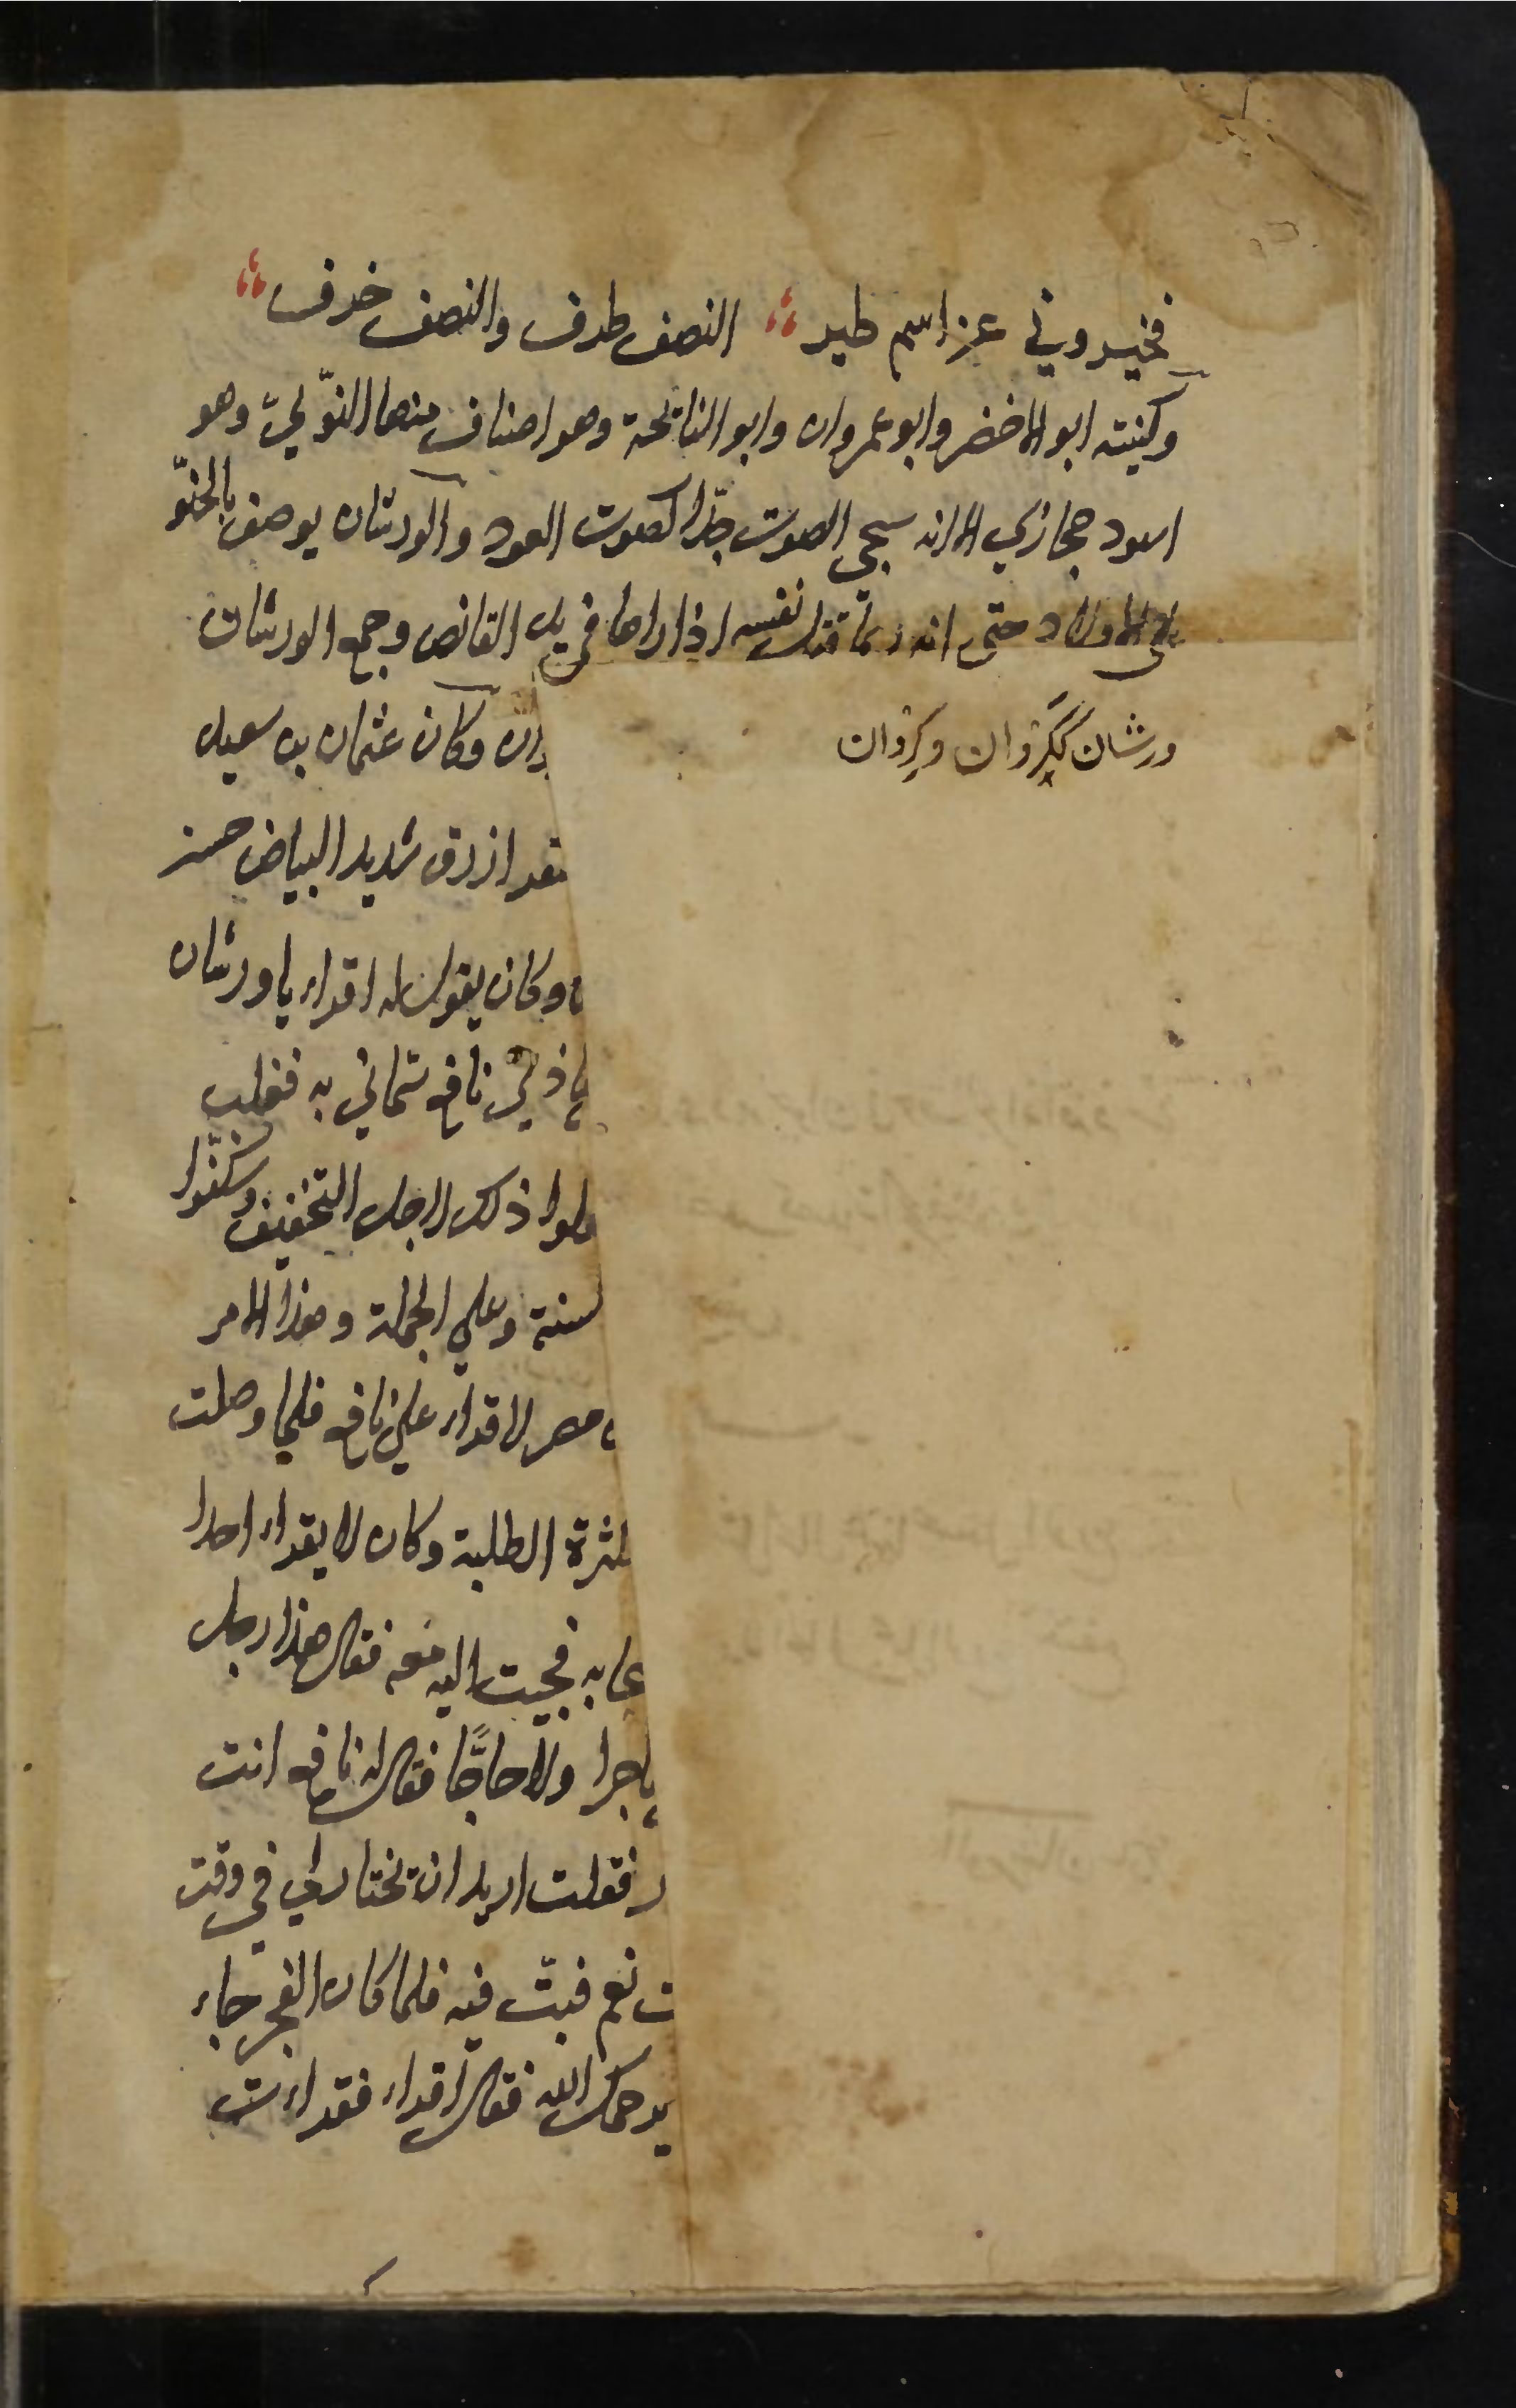 فخبروني عن اسم طير النصف ظرف والنصف حرف
وكنيته ابو الاخضر وابو عمران وابو النائحة وهو اصناف منها النوبي وهو
اسود حجازي الا انه سجي الصوت جدا كصوت العود والورشان يوصف بالحنو
على الاولاد حتى انه ربما قتل نفسه اذا راها في يد القانص وجمع الورشان
ورشان ككروان وكروان
وكان عثمان بن سعيد
ازرق شديد البياض حسن
وكان يقول له اقراء يا ورشان
نافع سماني به فغلب
ذلك لاجل التخفيف وسكنوا
سنة وعلي الجملة وهذا الامر
مصر لاقراء علي نافع فلما وصلت
الطلبة وكان لا يقراء احدا
به فجيت اليه معه فقال هذا رجل
ولا حاجا فقال له نافع انت
فقلت اريد ان تختار لي في وقت
ت نعم فبت فيه فلما كان الفجر جاء
يرحمك الله فقال اقراء فقراءت